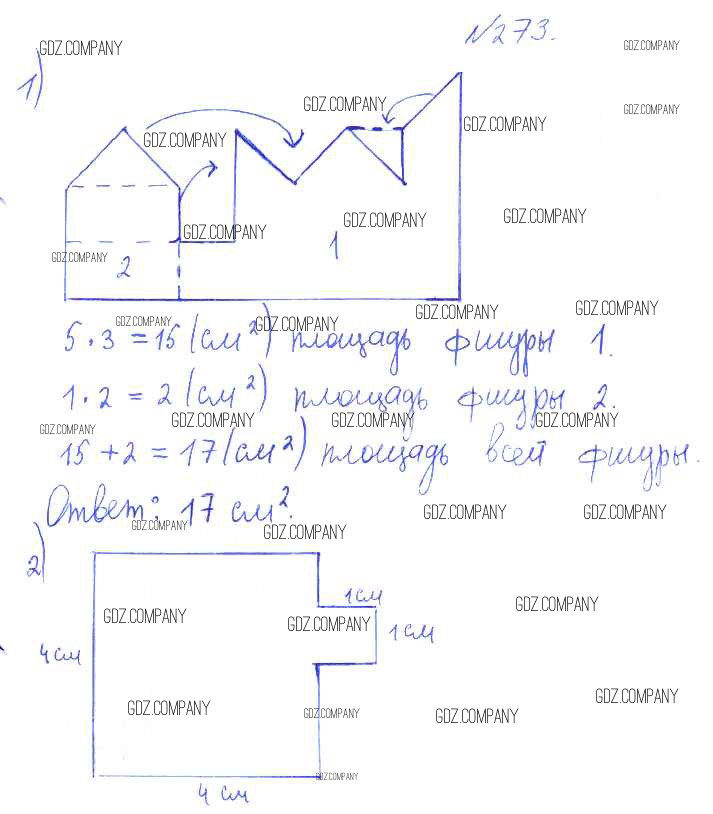 №273.
GDZ.COMPANY GDZ.COMPANY
1)
GDZ.COMPANY GDZ.COMPANY
GDZ.COMPANY GDZ.COMPANY
GDZ.COMPANY GDZ.COMPANY GDZ.COMPANY
1
GDZ.COMPANY
2
GDZ.COMPANY GDZ.COMPANY GDZ.COMPANY GDZ.COMPANY
5 · 3 = 15 (см²) площадь фигуры 1.
1 · 2 = 2 (см²) площадь фигуры 2.
GDZ.COMPANY GDZ.COMPANY GDZ.COMPANY GDZ.COMPANY
15 + 2 = 17 (см²) площадь всей фигуры.
Ответ: 17 см².
GDZ.COMPANY GDZ.COMPANY GDZ.COMPANY GDZ.COMPANY
2)
1 см
GDZ.COMPANY GDZ.COMPANY GDZ.COMPANY
1 см
4 см
GDZ.COMPANY GDZ.COMPANY GDZ.COMPANY GDZ.COMPANY
GDZ.COMPANY
4 см